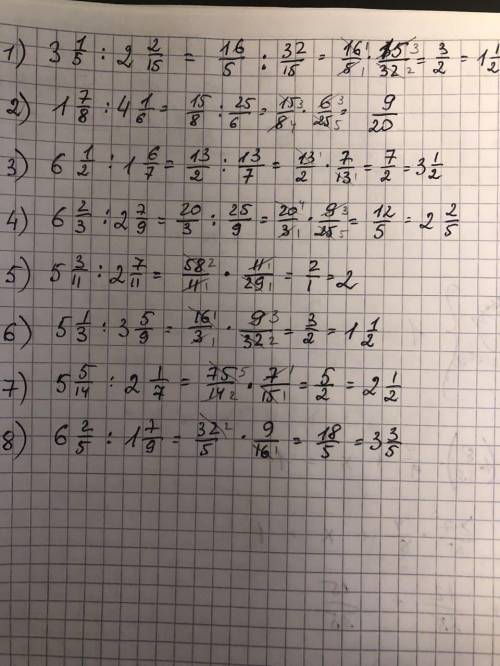 1) 3 1/5 : 2 2/15 = 16/5 : 32/15 = 16/8 · 15/32 = 3/2 = 1 1/2
2) 1 7/8 : 4 1/6 = 15/8 : 25/6 = 15/8 · 6/25 = 9/20
3) 6 1/2 : 1 6/7 = 13/2 : 13/7 = 13/2 · 7/13 = 7/2 = 3 1/2
4) 6 2/3 : 2 7/9 = 20/3 : 25/9 = 20/3 · 9/25 = 12/5 = 2 2/5
5) 5 3/11 : 2 7/11 = 58/11 · 11/29 = 2/1 = 2
6) 5 1/3 : 3 5/9 = 16/3 · 9/32 = 3/2 = 1 1/2
7) 5 5/14 : 2 1/7 = 75/14 · 7/15 = 5/2 = 2 1/2
8) 6 2/5 : 1 7/9 = 32/5 · 9/16 = 18/5 = 3 3/5